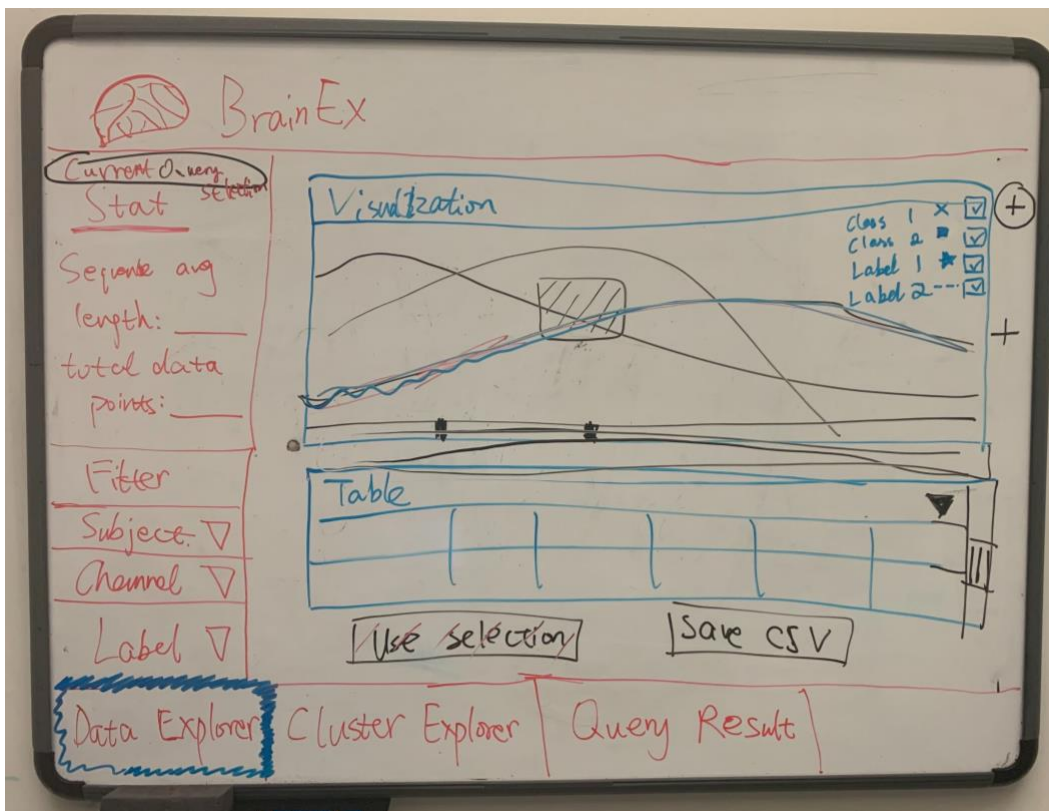 BrainEx
Current Query
Selection
Stat
Sequence avg
length:
total data
points:
Filter
Subject
Channel
Label
Visulization
Class 1 x
Class 2
Label 1
Label 2
+
+
Table
Use selection
Save CSV
Data Explorer
Cluster Explorer
Query Result